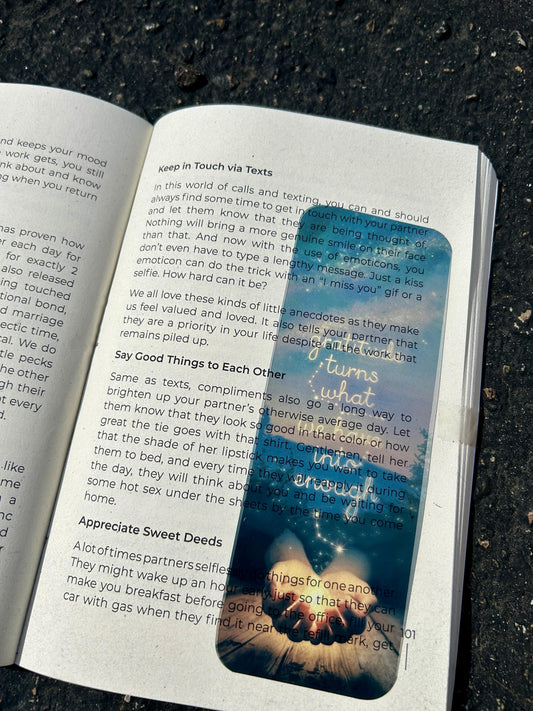 nd keeps your mood
work gets, you still
nk about and know
ng when you return
has proven how
er each day for
for exactly 2
also released
ing touched
tional bond,
d marriage
ectic time,
tal. We do
tle pecks
he other
gh their
at every
d.
like
me
a
nc
d
r
Keep in Touch via Texts
In this world of calls and texting, you can and should
always find some time to get in touch with your partner
and let them know that they are being thought of.
Nothing will bring a more genuine smile on their face
than that. And now with the use of emoticons, you
don't even have to type a lengthy message. Just a kiss
emoticon can do the trick with an "I miss you" gif or a
selfie. How hard can it be?
We all love these kinds of little anecdotes as they make
us feel valued and loved. It also tells your partner that
they are a priority in your life despite all the work that
remains piled up.
Say Good Things to Each Other
Same as texts, compliments also go a long way to
brighten up your partner's otherwise average day. Let
them know that they look so good in that color or how
great the tie goes with that shirt. Gentlemen, tell her
that the shade of her lipstick makes you want to take
them to bed, and every time they will reapply it during
the day, they will think about you and be waiting for
some hot sex under the sheets by the time you come
home.
Appreciate Sweet Deeds
A lot of times partners selflessly do things for one another.
They might wake up an hour early just so that they can
make you breakfast before going to the office, fill your
car with gas when they find it near the refill mark, get
101
gratitude
turns
what
we have
into
enough